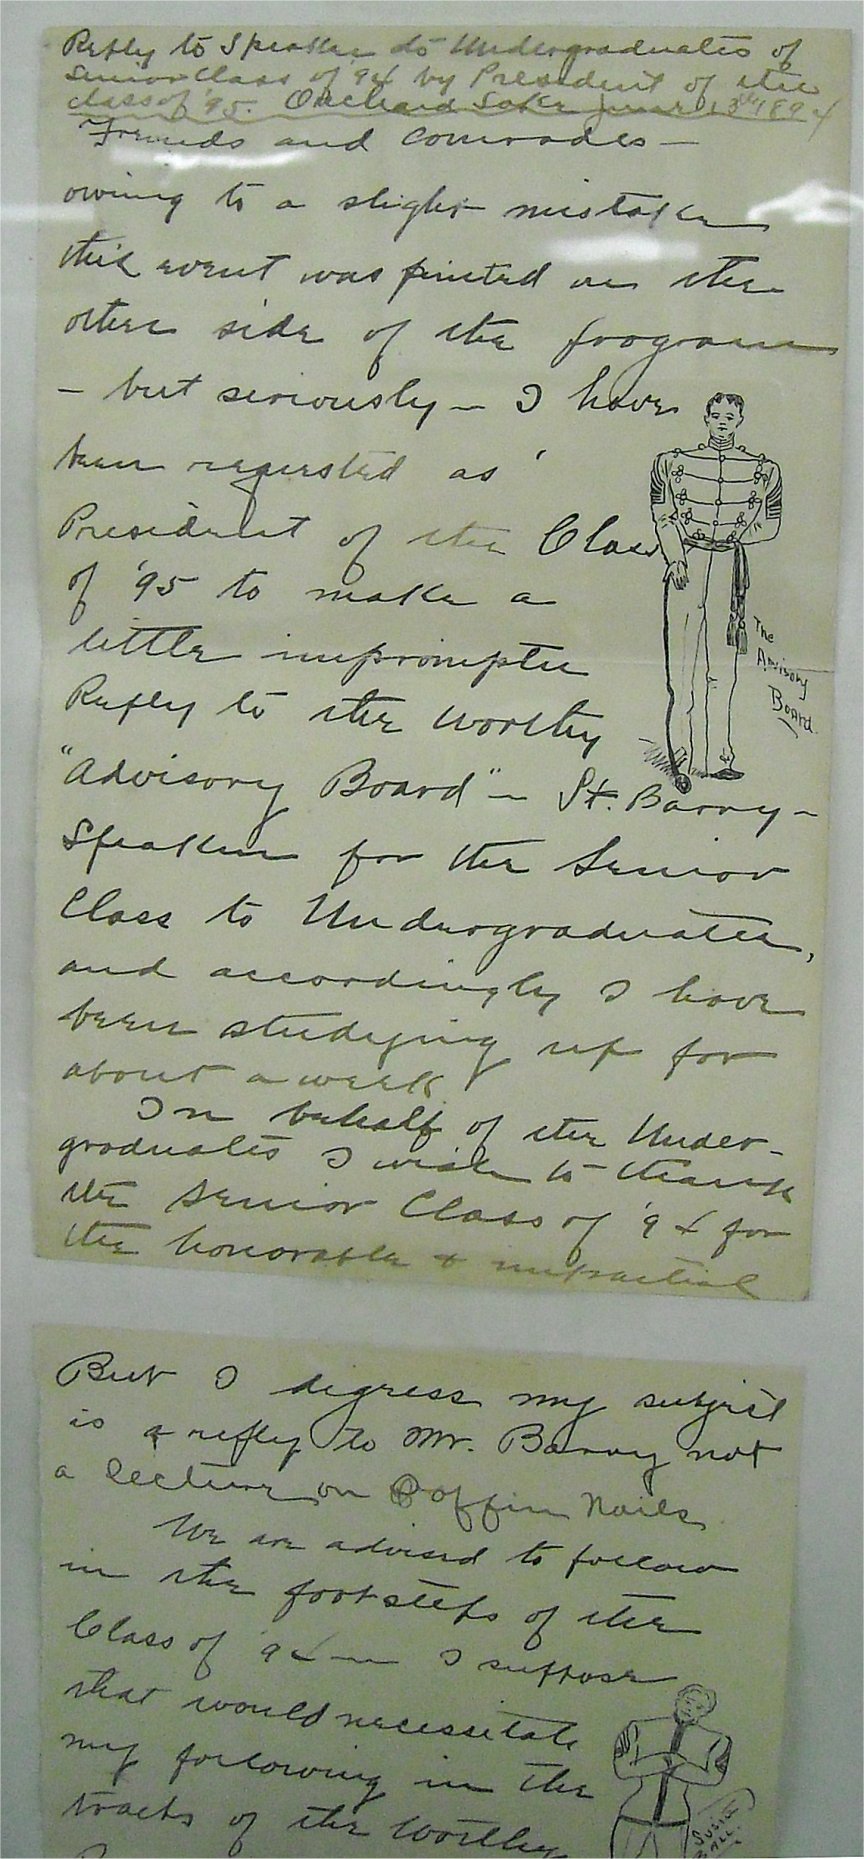 Reply to Speaker to Undergraduates of
Senior Class of 94 by President of the
class of '95. Orchard Lake June 13th 1894
Friends and Comrades —
owing to a slight mistake
this event was printed on the
other side of the program
— but seriously — I have
been requested as
President of the Class
of '95 to make a
little impromptu
Reply to the worthy
"Advisory Board" — St. Barry —
Speaker for the Senior
Class to Undergraduates,
and accordingly I have
been studying up for
about a week
In behalf of the Under-
graduates I wish to thank
the Senior Class of '94 for
the honorable + impartial
The
Advisory
Board
But I digress my subject
is a reply to Mr. Barry not
a lecture on Coffin Nails
We are advised to follow
in the footsteps of the
Class of '94 — I suppose
that would necessitate
my following in the
tracks of the worthy
Susie